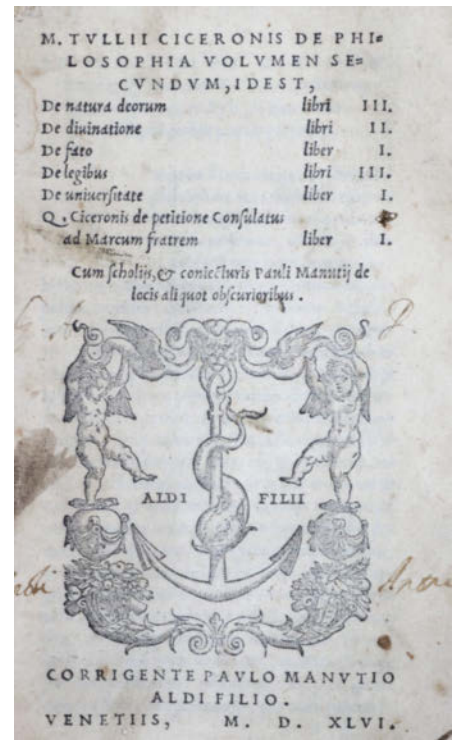 M. TVLLII CICERONIS DE PHI=
LOSOPHIA VOLVMEN SE=
CVNDVM, IDEST,
De natura deorum libri III.
De diuinatione libri II.
De fato liber I.
De legibus libri III.
De uniuerſitate liber I.
Q. Ciceronis de petitione Conſulatus
ad Marcum fratrem liber I.
Cum ſcholijs, & coniecturis Pauli Manutij de
locis aliquot obſcurioribus.
ALDI FILII
CORRIGENTE PAVLO MANVTIO
ALDI FILIO.
VENETIIS, M. D. XLVI.